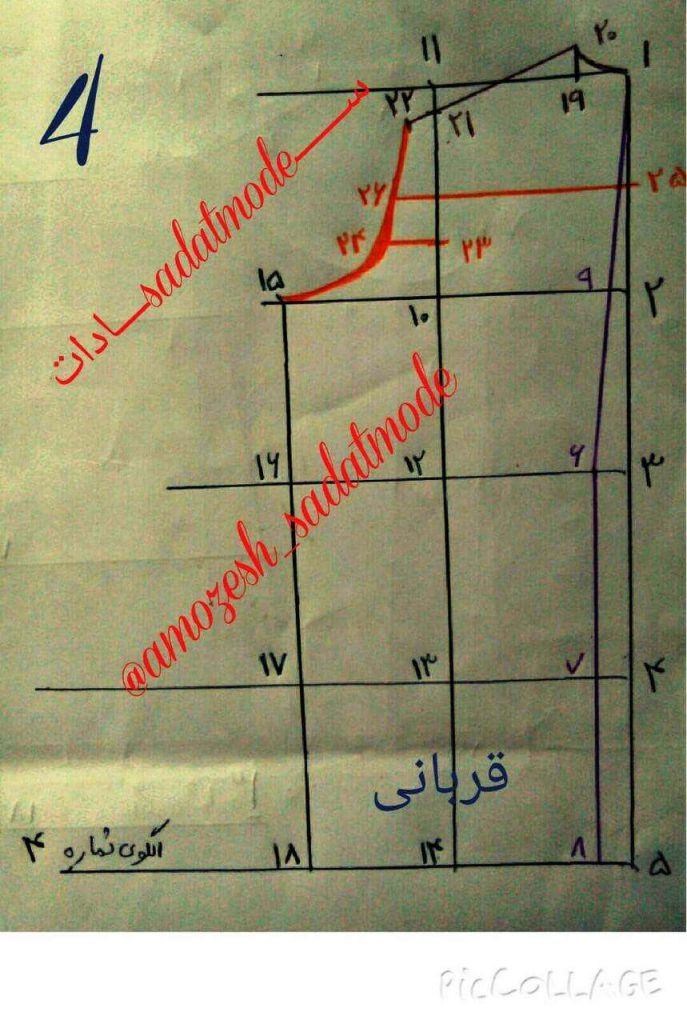 4
۱۱
۲۰
۱
۲۲
۲۱
۱۹
ســادات_sadatmode_ســ
۲۶
۲۵
۲۴
۲۳
۱۵
۱۰
۹
۲
۱۶
۱۲
۶
۳
@amozesh_sadatmode
۱۷
۱۳
۷
۴
قربانی
الگوی شماره ۴
۱۸
۱۴
۸
۵
PicCOLLAGE